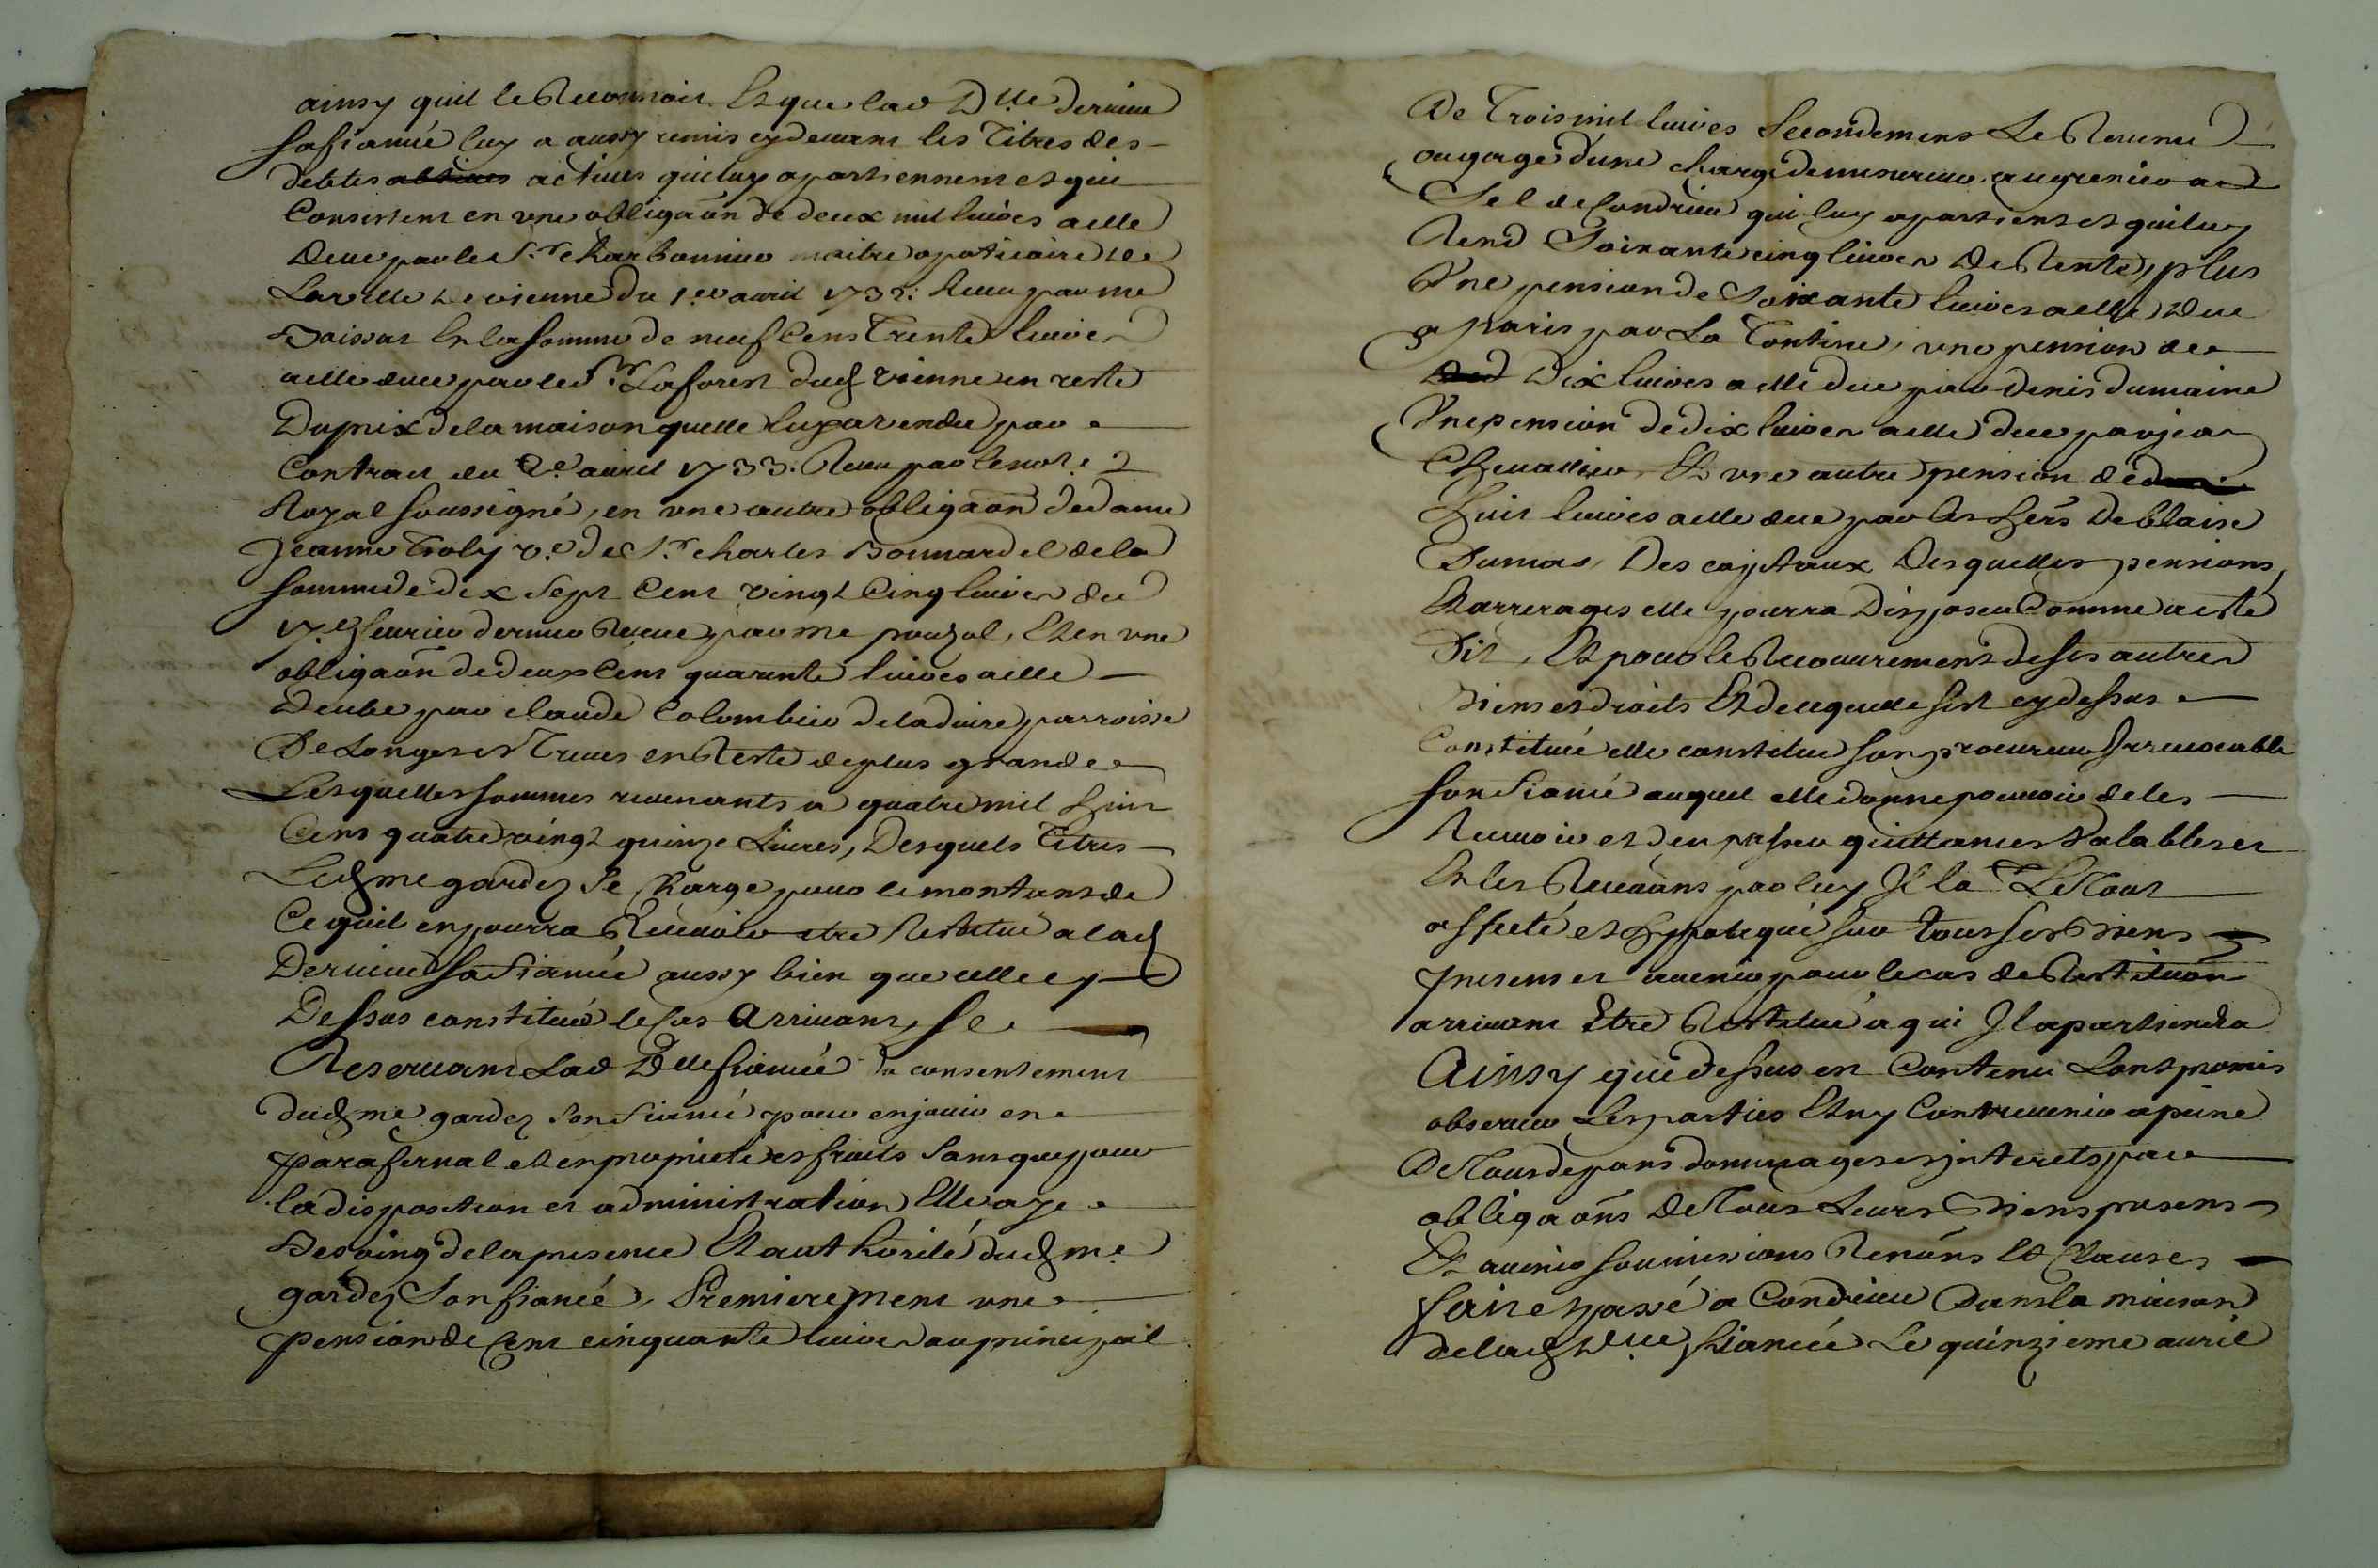 ainsy quil le Reconnoit Et que lad Dlle derieue
sa fiancée luy a aussy remis cy devant les Titres des
debtes actives qui luy apartiennent et qui
Consistent en une obligaôn de deux mil livres a elle
deue par le Sr charbonnier maitre apoticaire de
La ville de vienne du 1er avril 1732. Receu par me
Boissat Et la somme de neuf Cens Trente livres
a elle deue par led Sr Laforest dud vienne en reste
Du prix de la maison quelle luy a vendue par
Contract du 2e avril 1733. Receu par le not.e
Royal soussigné, en une autre obligaôn de dame
Jeanne Troly v.e de Sr charles Bonnardel de la
somme de dix Sept Cent vingt Cinq livres du
17e fevrier dernier Receue par me pouzol, Et en une
obligaôn de deux Cent quarante livres a elle
Deube par claude Colombier de ladire parroisse
De Longes et Treves en Reste de plus grande
Lesquelles sommes revenants a quatre mil huit
Cens quatre vingt quinze Livres, Desquels Titres
Led me gardez se Charge pour le montant de
Ce quil en pourra Recevoir etre Restitué a lad
Derieue sa fiancée aussy bien que celle cy
Dessus constituée le Cas Arrivant, se
Reservant Lad Dlle fiancée du consentement
dud me gardez son fiancé pour en jouir en
parafernal et en proprieté et fruits sans que pour
la disposition et administration Elle aye
Besoing de la presence Et authorité dud me
gardez Son fiancé, Premierement une
pension de Cent cinquante livres au principal
De Trois mil livres Secondement Le Revenu
ou gage d'une charge de mesureur au grenier a
Sel de Condrieu qui luy apartient et qui luy
Rend Soixante cinq livres De Rente, plus
Une pension de Soixante livres a elle Deue
a Paris par La Tontine, une pension de
Dix livres a elle due par Denis dumaine
Une pension de dix livres a elle deue par jean
Chevallier, Et une autre pension de
huit livres a elle due par les hers De blaise
Dumas, Des capitaux Desquelles pensions,
Et arrerages elle pourra Disposer Comme a esté
Dit, Et pour le Recouvrement de ses autres
Biens et droits Et de ce quelle sest cy dessus
Constituée elle constitue son procureur Irrevocable
son fiancé auquel elle donne pouvoir de les
Recevoir et d'en passer quittances Valables et
Et les Recevant par luy Il la Le Tout
affecté et hypotequé sur tous ses Biens
presens et avenir pour le cas de Restituôn
arrivant Etre Restitué a qui Il apartiendra
Ainsy que dessus est Contenu Lont promis
observer Les parties Et ny Contrevenir a peine
De Tous depans dommages et interets par
obligaôns De Tous Leurs Biens presens
Et avenir soumissions Renôns et Clauses
fait et passé a Condrieu Dans la maison
de lad Dlle fiancée Le quinzieme avril